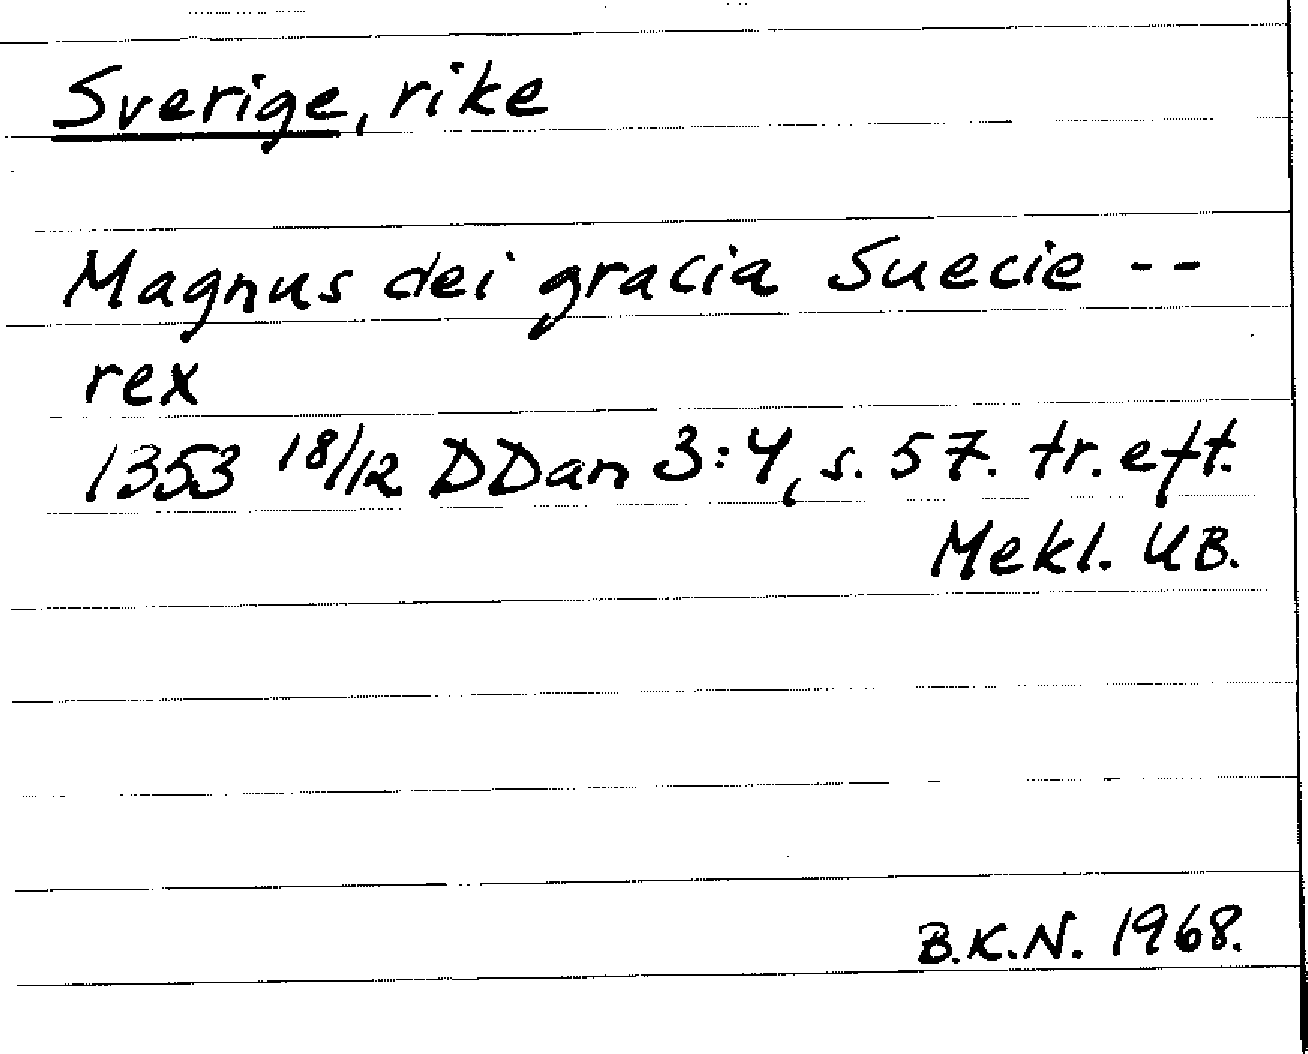 Sverige, rike
Magnus dei gracia Suecie --
rex
1353 18/12 DDan 3:4, s. 57. tr. eft.
Mekl. UB.
B.K.N. 1968.